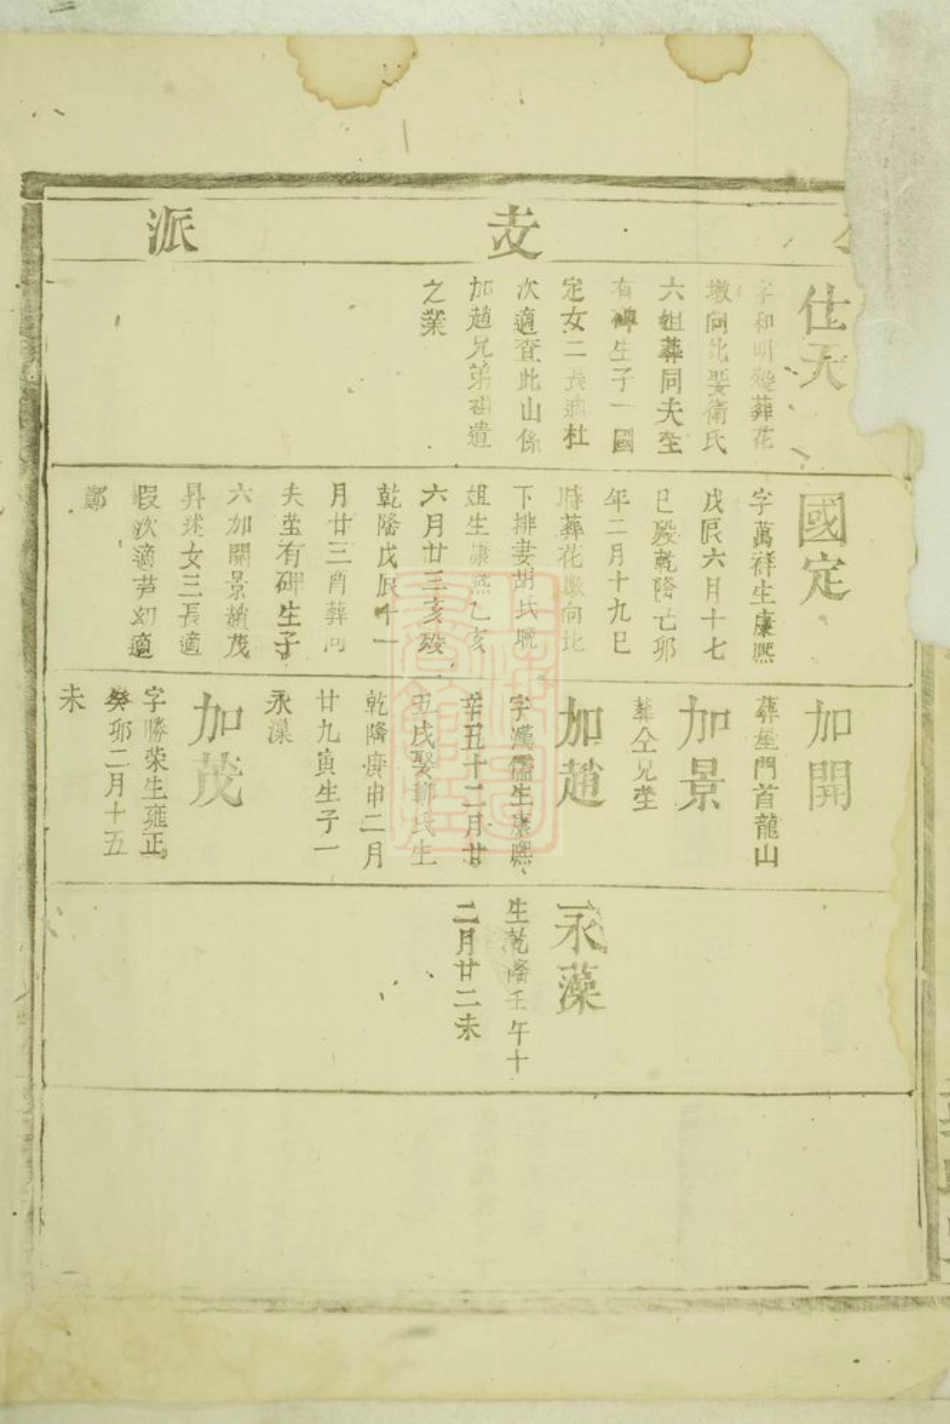 支派
仕天
字和明歿葬花
墩向北娶衛氏
六姐葬同夫塋
有碑生子一國
定女二長適杜
次適查此山係
加趙兄弟祖遺
之業
國定
字萬祥生康熙
戊辰六月十七
巳殿乾隆乙卯
年二月十九巳
時葬花墩向北
下排妻胡氏晚
姐生康熙乙亥
六月廿三亥歿
乾隆戊辰十一
月廿三酉葬同
夫塋有碑生子
六加開景趙茂
昇述女三長適
段次適芦幼適
鄭
加開
葬屋門首龍山
加景
葬仝兄塋
加趙
字漢儒生康熙
辛丑十二月廿
五戌娶鄭氏生
乾隆庚申二月
廿九寅生子一
永藻
加茂
字勝荣生雍正
癸卯二月十五
未
永藻
生乾隆壬午十
二月廿二未